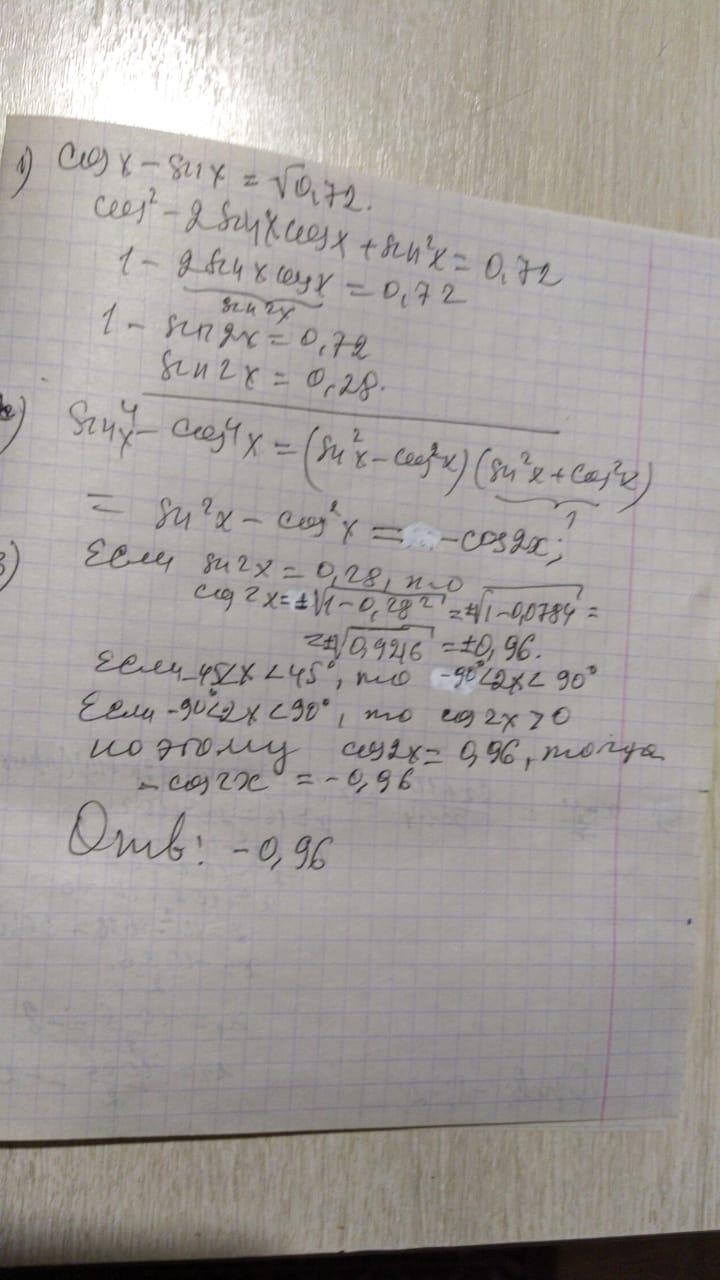 1) cos x - sin x = √0,72.
cos² - 2 sin x cos x + sin² x = 0,72
1 - 2 sin x cos x = 0,72
sin 2x
1 - sin 2x = 0,72
sin 2x = 0,28.
sin⁴x - cos⁴x = (sin²x - cos²x)(sin²x + cos²x)
1
= sin²x - cos²x = -cos2x;
3) Если sin 2x = 0,28, то
cos 2x = ±√1-0,28² = ±√1-0,0784 =
= ±√0,9216 = ±0,96.
Если -45<x<45°, то -90°<2x<90°
Если -90°<2x<90°, то cos 2x > 0
поэтому cos2x = 0,96, тогда
- cos 2x = -0,96
Отв: -0,96